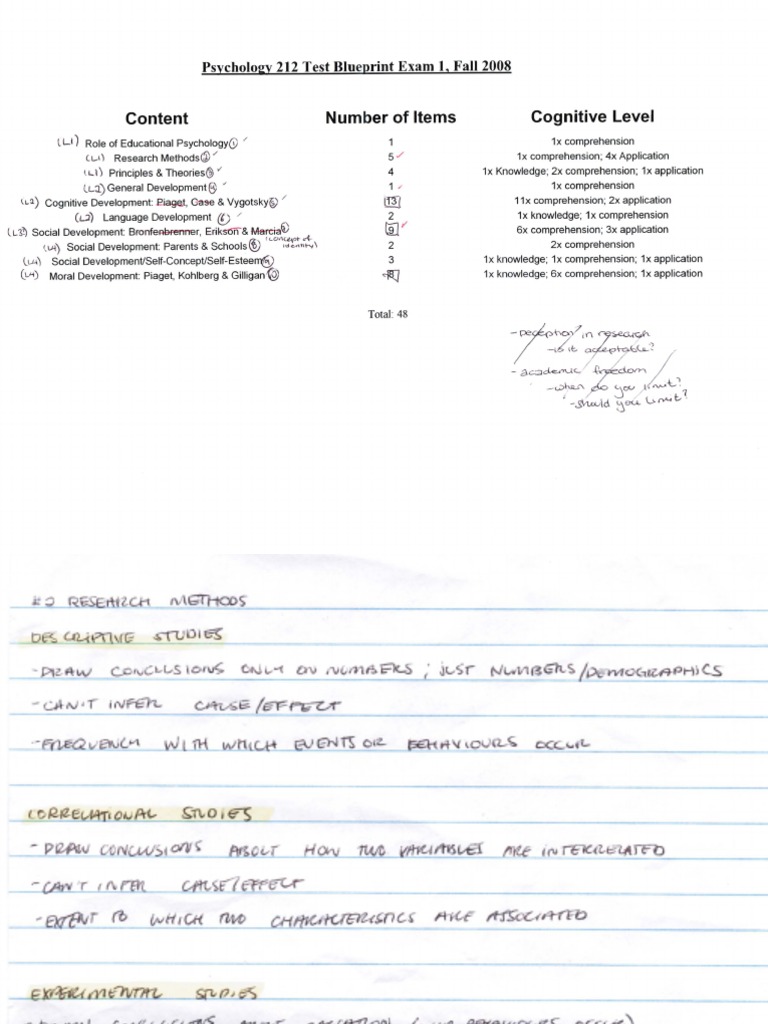 Psychology 212 Test Blueprint Exam 1, Fall 2008
Content Number of Items Cognitive Level
(L1) Role of Educational Psychology 1 1 1x comprehension
(L1) Research Methods 2 5 1x comprehension; 4x Application
(L1) Principles & Theories 3 4 1x Knowledge; 2x comprehension; 1x application
(L2) General Development 4 1 1x comprehension
(L2) Cognitive Development: Piaget, Case & Vygotsky 5 13 11x comprehension; 2x application
(L2) Language Development 6 2 1x knowledge; 1x comprehension
(L3) Social Development: Bronfenbrenner, Erikson & Marcia 9 6x comprehension; 3x application
(concept of identity)
(L4) Social Development: Parents & Schools 8 2 2x comprehension
(L4) Social Development/Self-Concept/Self-Esteem 9 3 1x knowledge; 1x comprehension; 1x application
(L4) Moral Development: Piaget, Kohlberg & Gilligan 10 8 1x knowledge; 6x comprehension; 1x application
Total: 48
- Deception in research
- is it acceptable?
- academic freedom
- when do you limit?
- should you limit?
#2 RESEARCH METHODS
DESCRIPTIVE STUDIES
- DRAW CONCLUSIONS ONLY ON NUMBERS; JUST NUMBERS/DEMOGRAPHICS
- CAN'T INFER CAUSE/EFFECT
- FREQUENCY WITH WHICH EVENTS OR BEHAVIOURS OCCUR
CORRELATIONAL STUDIES
- DRAW CONCLUSIONS ABOUT HOW TWO VARIABLES ARE INTERRELATED
- CAN'T INFER CAUSE/EFFECT
- EXTENT TO WHICH TWO CHARACTERISTICS ARE ASSOCIATED
EXPERIMENTAL STUDIES